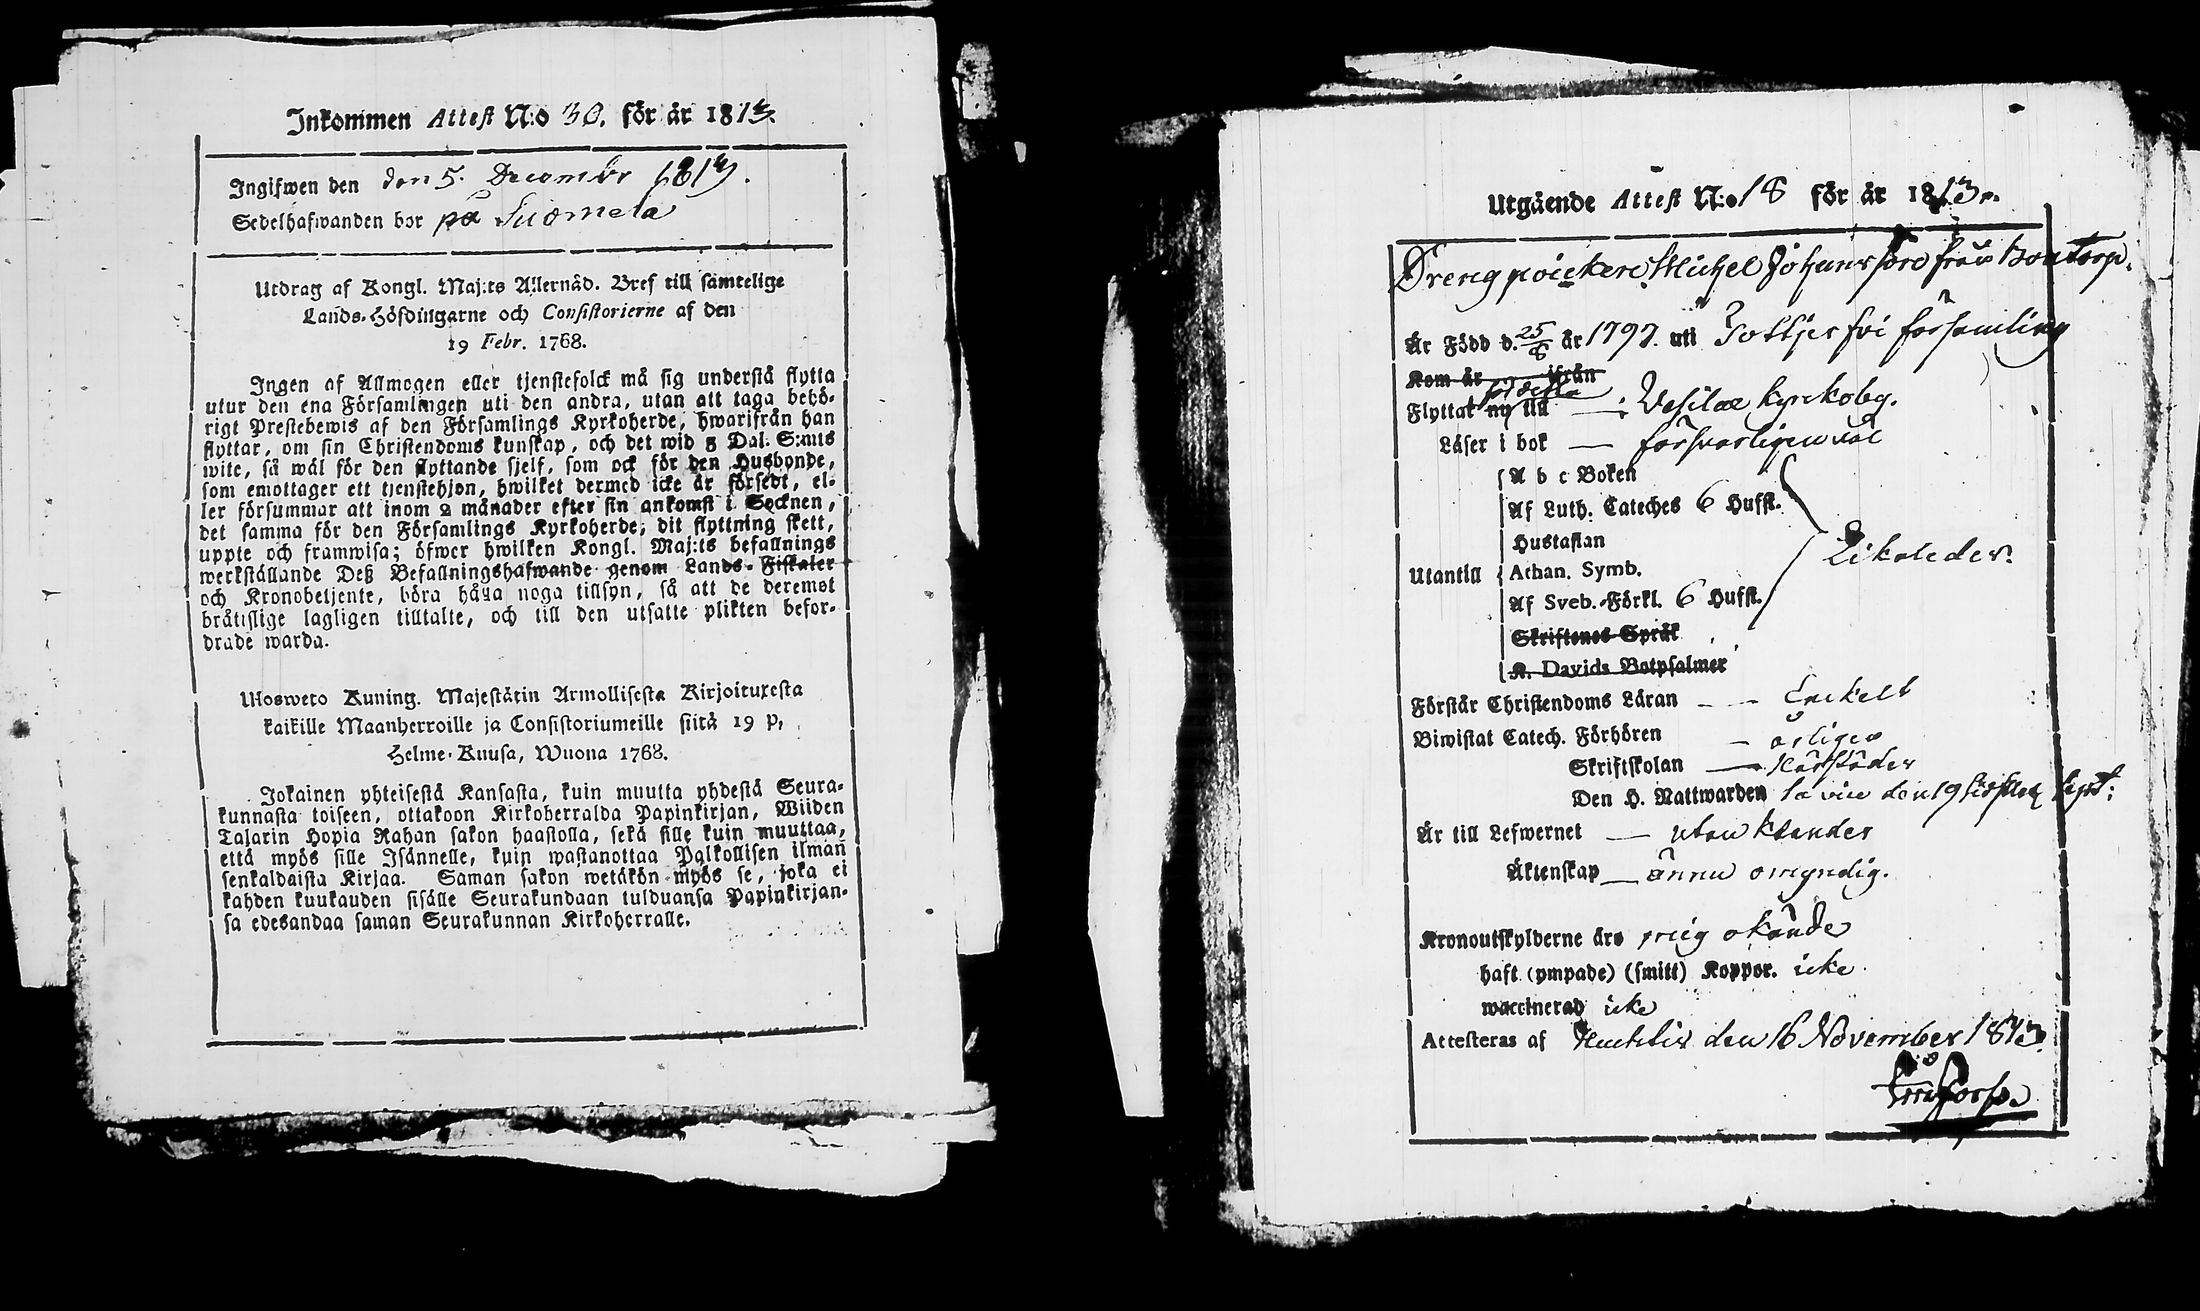 Inkommen Attest N:o 30. för år 1813.
Ingifwen den den 5. Decembr 1813.
Sedelhafwanden bor på Suomela
Utdrag af Kongl. Maj:ts Allernåd. Bref till samtelige
Lands-Höfdingarne och Consistorierne af den
19 Febr. 1768.
Ingen af Allmogen eller tjenstefolck må sig understå flytta
utur den ena Församlingen uti den andra, utan att taga behö-
rigt Prestebewis af den Församlings Kyrkoherde, hwarifrån han
flyttar, om sin Christendoms kunskap, och det wid 5 Dal. S:mts
wite, så wäl för den flyttande sjelf, som ock för den Husbonde,
som emottager ett tjenstehjon, hwilket dermed icke är försedt, el-
ler försummar att inom 2 månader efter sin ankomst i Socknen,
det samma för den Församlings Kyrkoherde, dit flyttning skett,
uppte och framwisa; öfwer hwilken Kongl. Maj:ts befallnings
werkställande Deß Befallningshafwande genom Lands-Fiskaler
och Kronobetjente, böra håua noga tillsyn, så att de deremot
bråtislige lagligen tilltalte, och till den utsatte plikten befor-
drade warda.
Ulosweto Kuning. Majestätin Armollisesta Kirjoituxesta
kaikille Maanherroille ja Consistoriumeille siitä 19 p.
Helme-Kuusa, Wuona 1768.
Jokainen yhteisestä Kansasta, kuin muutta yhdestä Seura-
kunnasta toiseen, ottakoon Kirkoherralda Papinkirjan, Wiiden
Talarin Hopia Rahan sakon haastolla, sekä sille kuin muuttaa,
että myös sille Isännelle, kuin wastanottaa Palkollisen ilman
senkaldaista Kirjaa. Saman sakon wetäkön myös se, joka ei
kahden kuukauden sisälle Seurakundaan tulduansa Papinkirjan-
sa edesandaa saman Seurakunnan Kirkoherralle.
Utgående Attest N:o 18 för år 1813.
Drengpoicken Michel Johansson från
Är Född d. 25/8 år 1797. uti församling
Kom år ifrån
Flyttat ny till Vesilax kyrkoby.
Läser i bok — försvarligen väl
A b c Boken
Af Luth. Cateches 6 Hufst.
Hustaflan
Utantill Athan. Symb. Likaledes.
Af Sveb. Förkl. 6 Hufst.
Skriftenes Språk
K. Davids Botpsalmer
Förstår Christendoms Läran — — Enkelt
Biwistat Catech. Förhören — årligen
Skriftskolan —
Den H. Nattwarden den 19 sistl. Sept:
Är till Lefwernet — utan klander
Äktenskap — ännu omyndig.
Kronoutskylderne äro mig okände
haft (ympade) (smitt) Koppor. icke
waccinerad icke
Attesteras af Huittis den 16 November 1813.